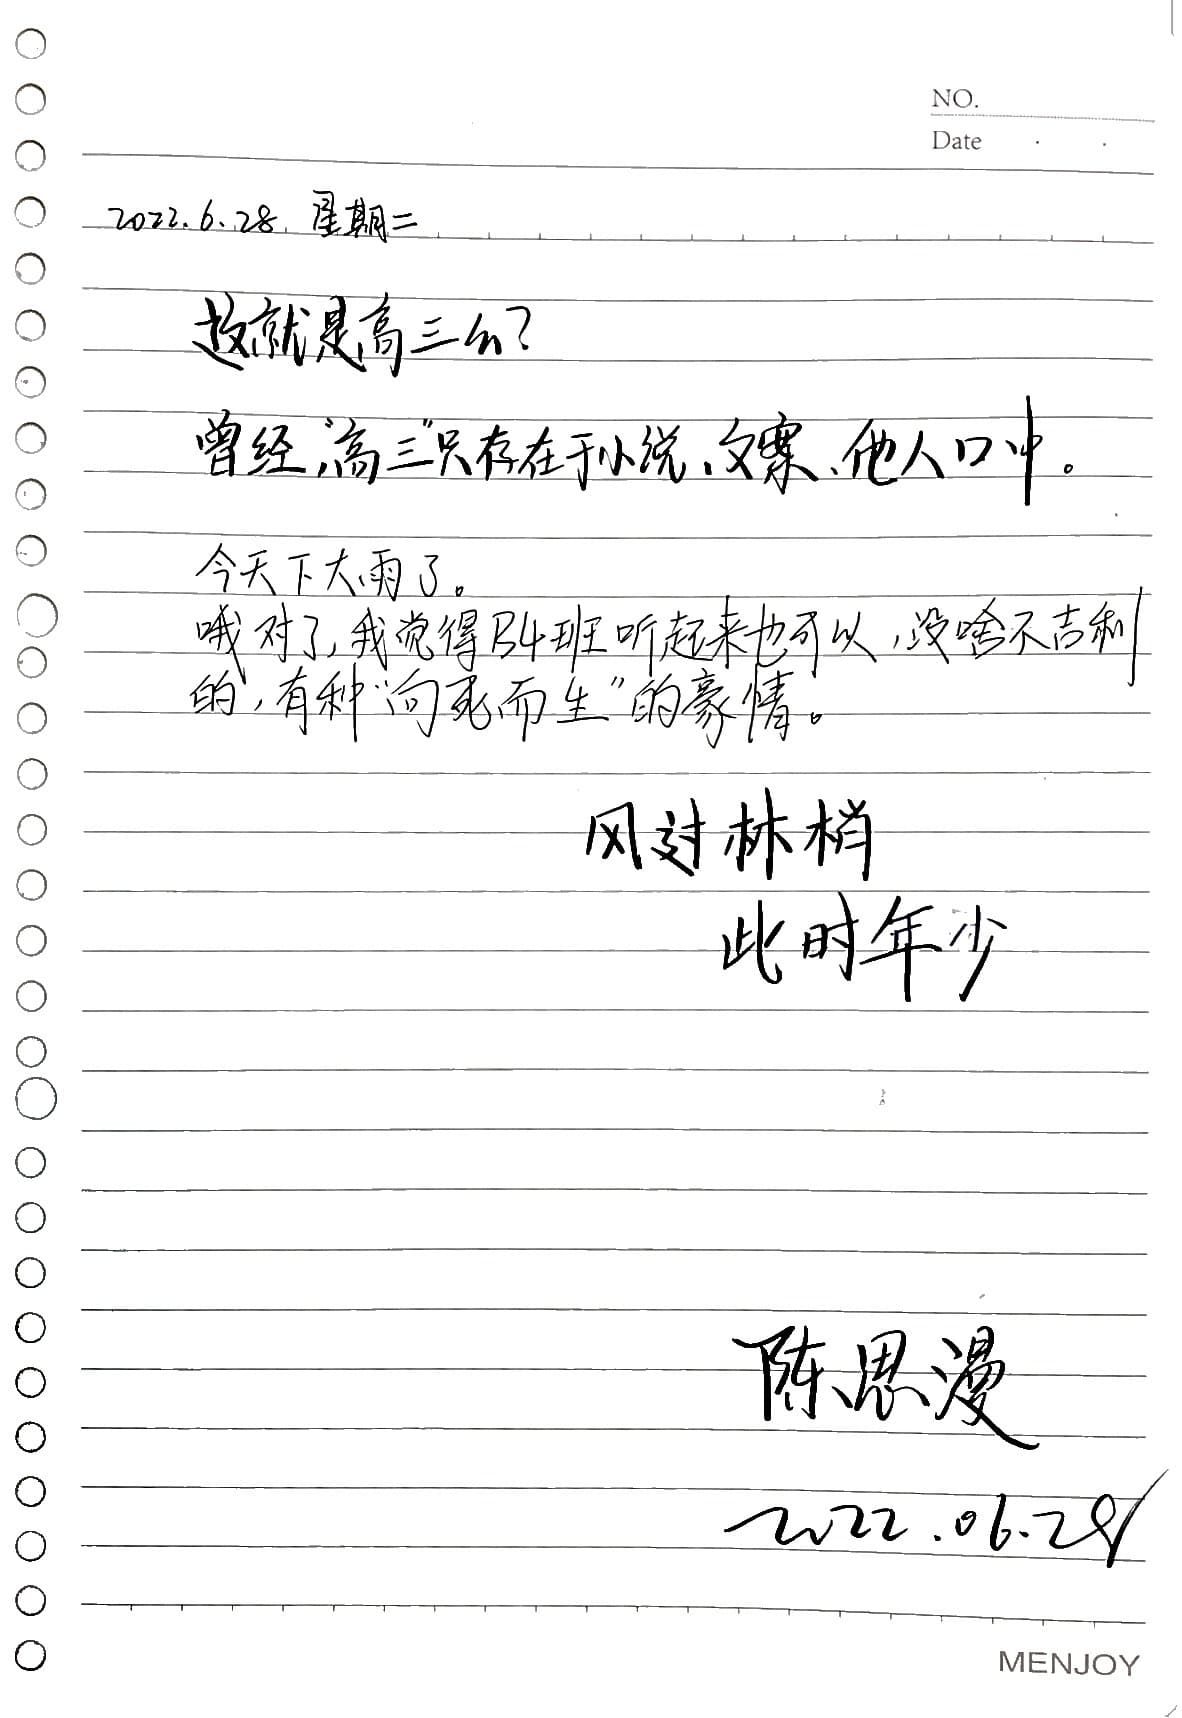 NO.
Date
2022.6.28. 星期二
这就是高三么?
曾经,“高三”只存在于小说、文案、他人口中。
今天下大雨了。
哦对了,我觉得B4班听起来也可以,没啥不吉利
的,有种“向死而生”的豪情。
风过林梢
此时年少
陈思漫
2022.06.28
MENJOY